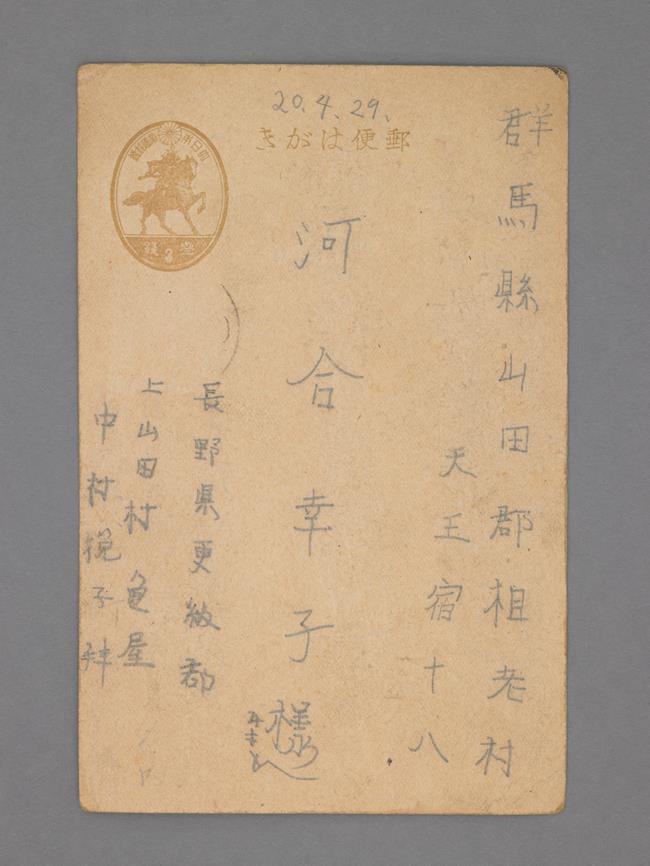 20.4.29.
郵便はがき
大日本帝國郵便
參 3 錢
群馬縣山田郡相老村
天王宿十八
河合幸子様
みもとへ
長野県更級郡
上山田村亀屋
中村悦子拝